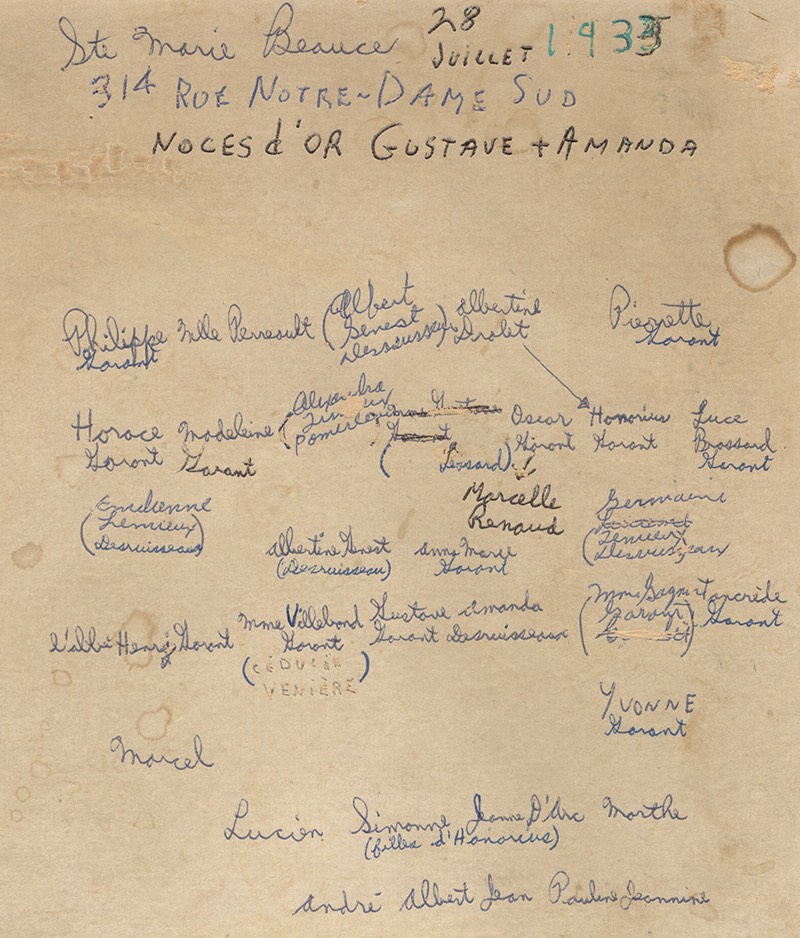 Ste Marie Beauce 28 JUILLET 1933
314 RUE NOTRE-DAME SUD
NOCES d'OR GUSTAVE + AMANDA
Philippe Garant Mlle Perreault (Albert Genest Desruisseau) Albertine Drolet Pierrette Garant
Horace Garant Madeleine Garant (Alexandra Pomerleau Mme Gustave Garant (Lessard) Oscar Garant Honorius Garant Luce Brossard Garant
Marcelle Renaud
(Lemieux Desruisseaux) Albertine Genest (Desruisseau) Anna Marie Garant Germaine (Lemieux Desruisseaux
L'abbé Henri Garant Mme Villebond Garant (CÉDULIE VENIÈRE) Gustave Garant Amanda Desruisseaux Mme Garant) Tancrède Garant
YVONNE Garant
Marcel
Lucien Simonne Jeanne D'Arc Marthe
(filles d'Honorius)
André Albert Jean Pauline Jeannine